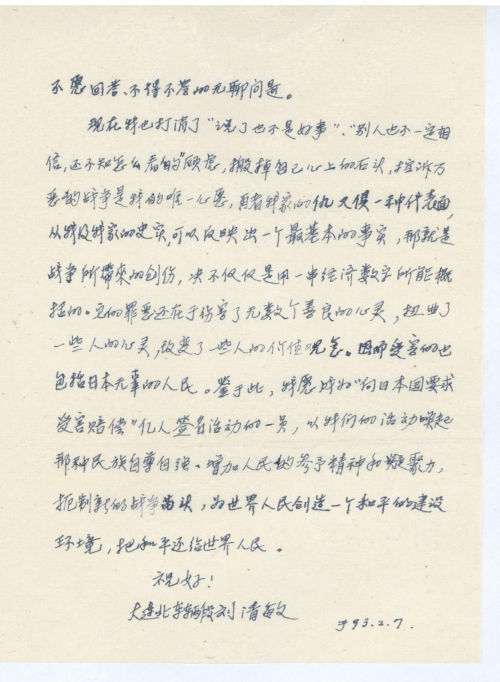 不愿回答、不得不答的无聊问题。
现在特也打消了“说了也不是好事”、“别人也不一定相
信,还不知怎么看自的”顾虑,搬掉自己心上的石头,控诉万
恶的战争是特的唯一心愿,再者特家的仇又俱一种代表面,
从特及特家的史实可以反映出一个最基本的事实,那就是
战争所带来的创伤,决不仅仅是用一串经济数字所能概
括的。它的罪恶还在于伤害了无数个善良的心灵,扭曲了
一些人的心灵,改变了一些人的价值观念。因而受害的也
包括日本无辜的人民。鉴于此,特愿成为“向日本国要求
受害赔偿”亿人签名活动的一员,以特们的活动唤起
那种民族自尊自强、增加人民的参予精神和凝聚力,
扼制新的战争苗头,为世界人民创造一个和平的建设
环境,把和平还给世界人民。
祝好!
大连北车辆段刘清敏
于93.2.7.